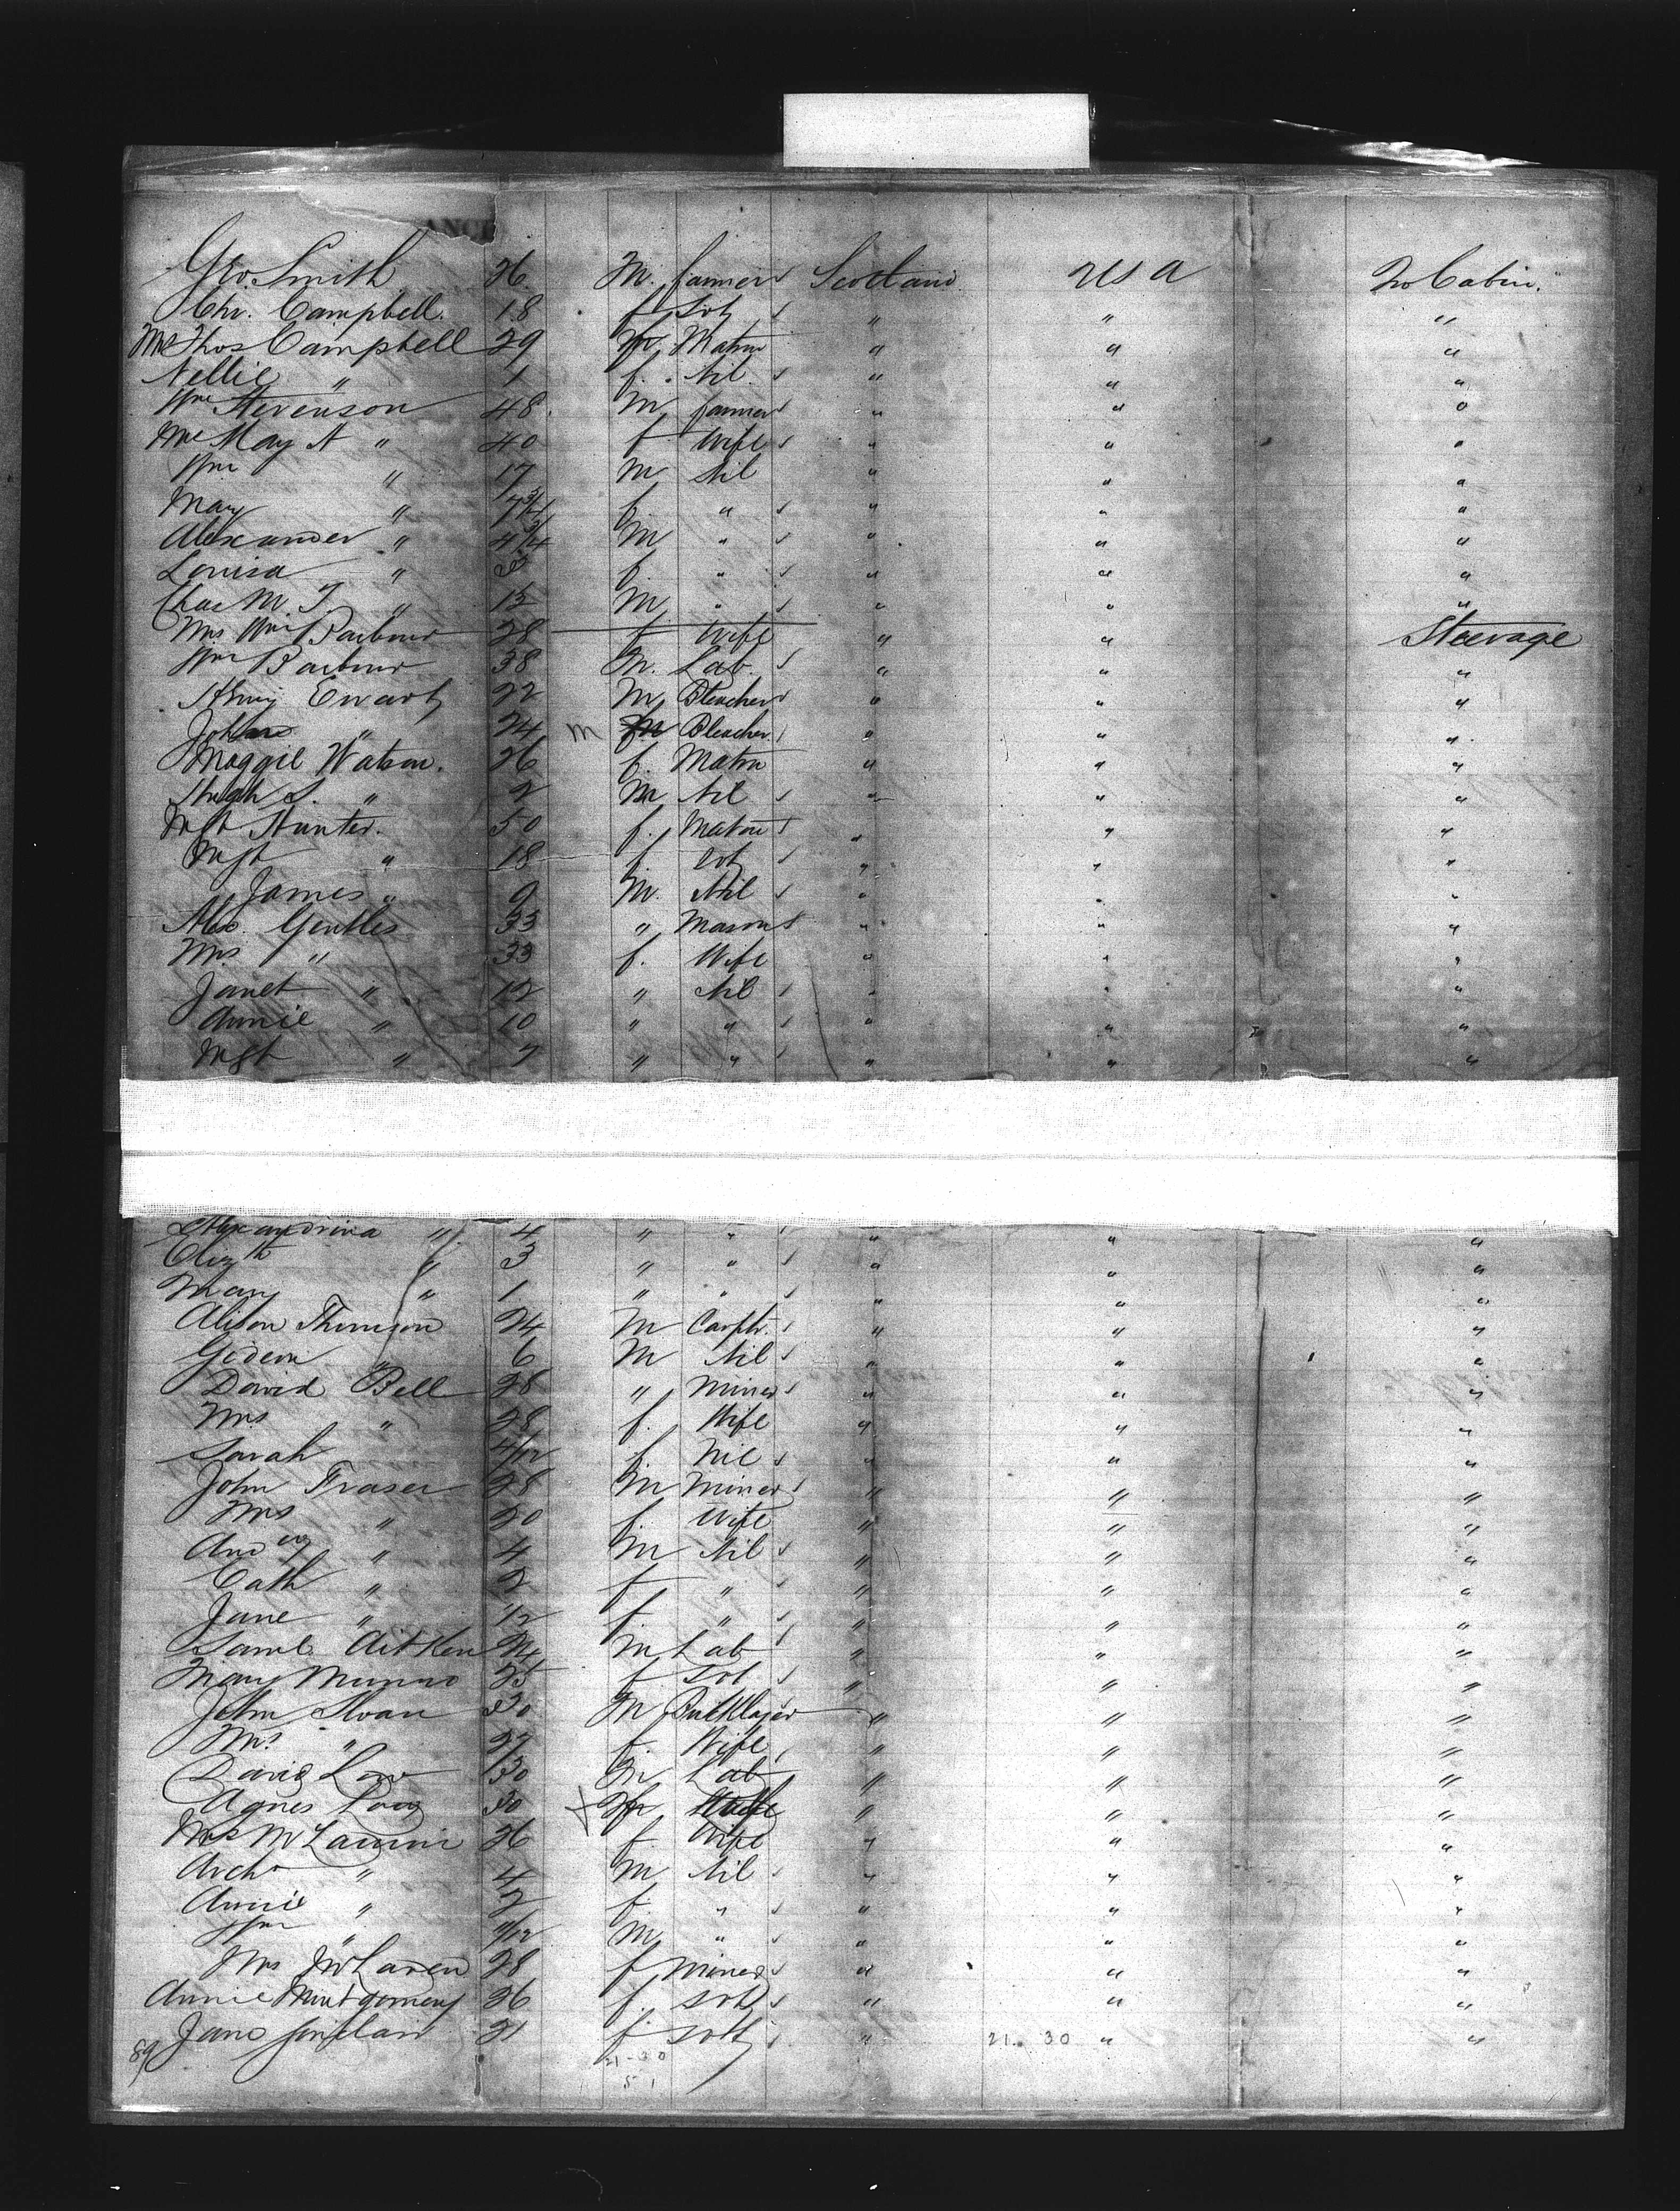 ANCE
Geo. Smith 26. M. farmer Scotland U S A 2o Cabin.
Chr. Campbell. 18 f " " "
Mrs Thos Campbell 29 f Matron " " "
Nellie " 1 f. Nil " " "
Wm Stevenson 48. M farmer " " "
Mrs May A " 40 f Wife " " "
Wm " 17 M Nil " " "
Mary " f. " " " "
Alexander " M " " " "
Louisa " f. " " " "
Chas M. T. " 13 M " " " "
Mrs Wm Barbour 28 f Wife " " Steerage
Wm Barbour 38 M. Lab. " " "
Henry Ewart 22 M Bleacher " " "
John " 24 m Bleacher " " "
Maggie Watson. 26 f. Matrn " " "
Hugh S. " 2 M Nil " " "
Mgt Hunter. 50 f. Matron " " "
Mgt " 18 f. " " "
James " 9 M. Nil " " "
Alex. Gentles 33 " Mason " " "
Mrs " 33 f. Wife " " "
Janet " 12 " Nil " " "
Annie " 10 " " " " "
Mgt " 7 " " " " "
Alexandrina " 4 " " " " "
Elizth " 3 " " " " "
Mary " 1 " " " " "
Alison Thomson 24 M Carptr. " " "
Gideon " 6 M Nil " " "
David Bell 28 " Miner " " "
Mrs " 28 f. Wife " " "
Sarah 4/12 f. Nil " " "
John Fraser 28 M Miner " " "
Mrs " 20 f. Wife " " "
Andw " 4 M Nil " " "
Cath " 2 f " " " "
Jane " /12 f " " " "
Saml Aitken 24 M Lab " " "
Mary Munro 25 f " " "
John Sloan 30 M Bricklayer " " "
Mrs " 27 f. Wife " " "
David Low 30 M Lab " " "
Agnes Low 30 f Wife " " "
Mrs McLaurin 26 f Wife " " "
Archd " 4 M Nil " " "
Annie " 2 f. " " " "
Wm " 11/12 M " " " "
Mrs McLaren 28 f Miner " " "
Annie Montgomery 26 f. " " "
Jane Sinclair 21 f " 21. 30 " "
89
21-30
5 1